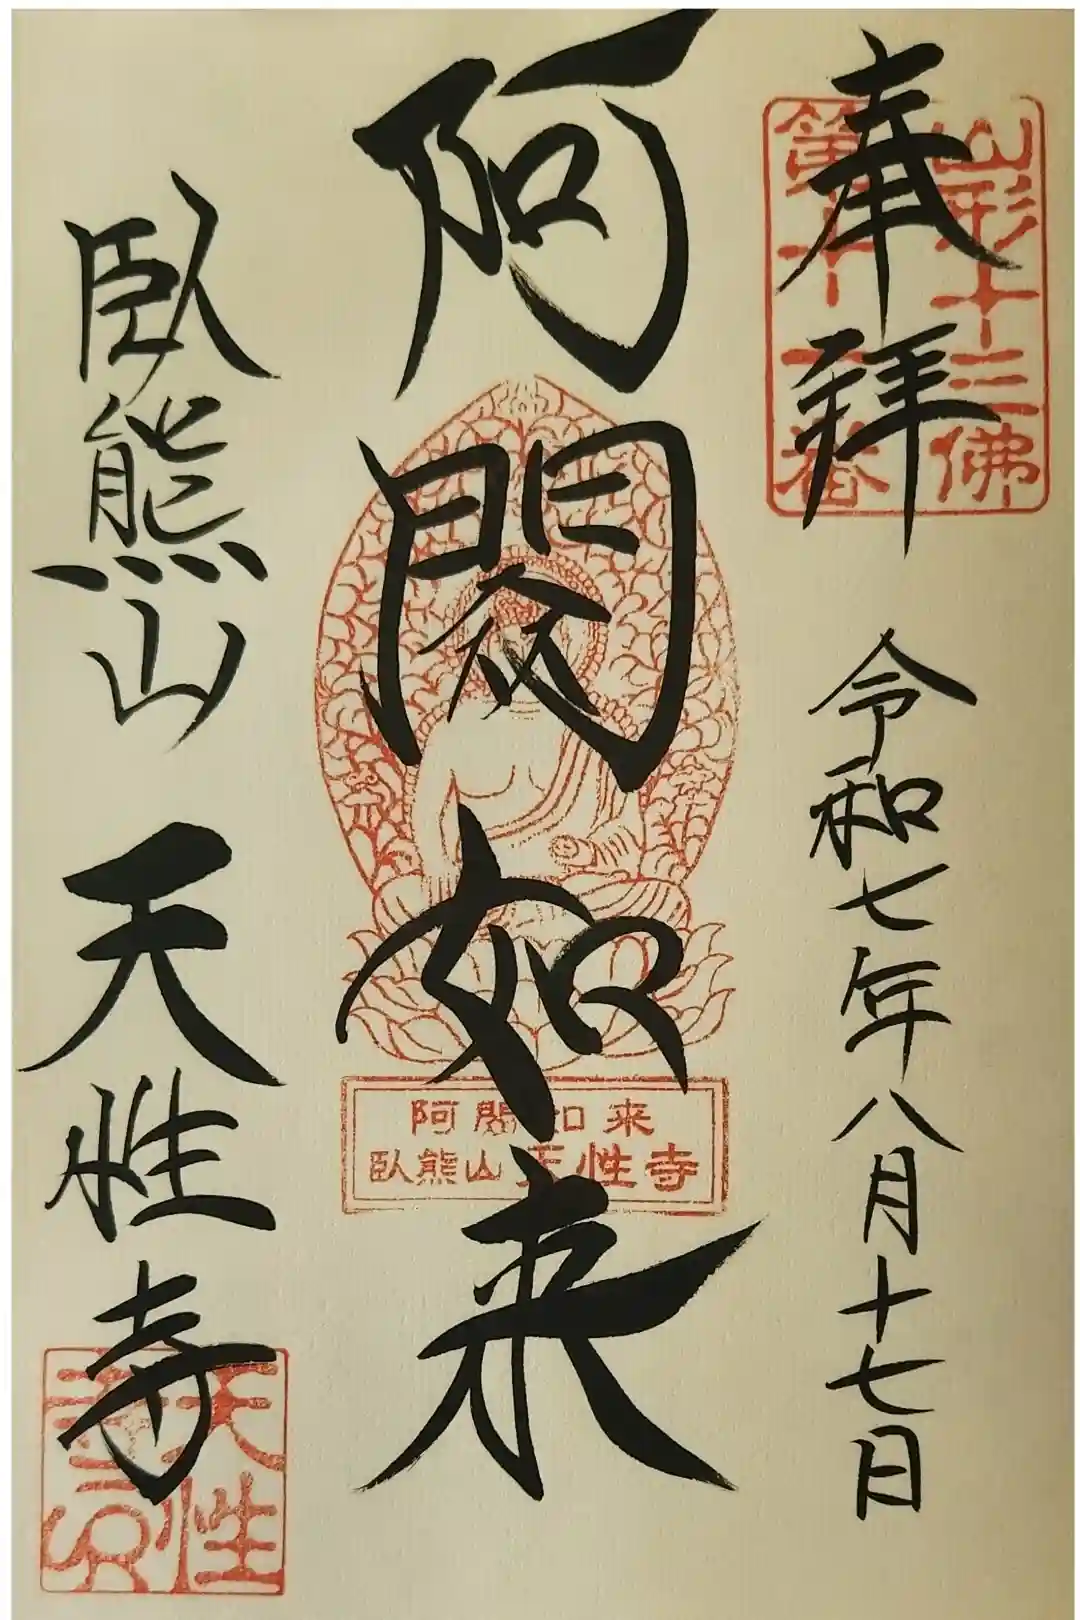 奉拝
山形十三佛
第十一番
令和七年八月十七日
阿閦如来
阿閦如来
臥熊山天性寺
臥熊山
天性寺
天性